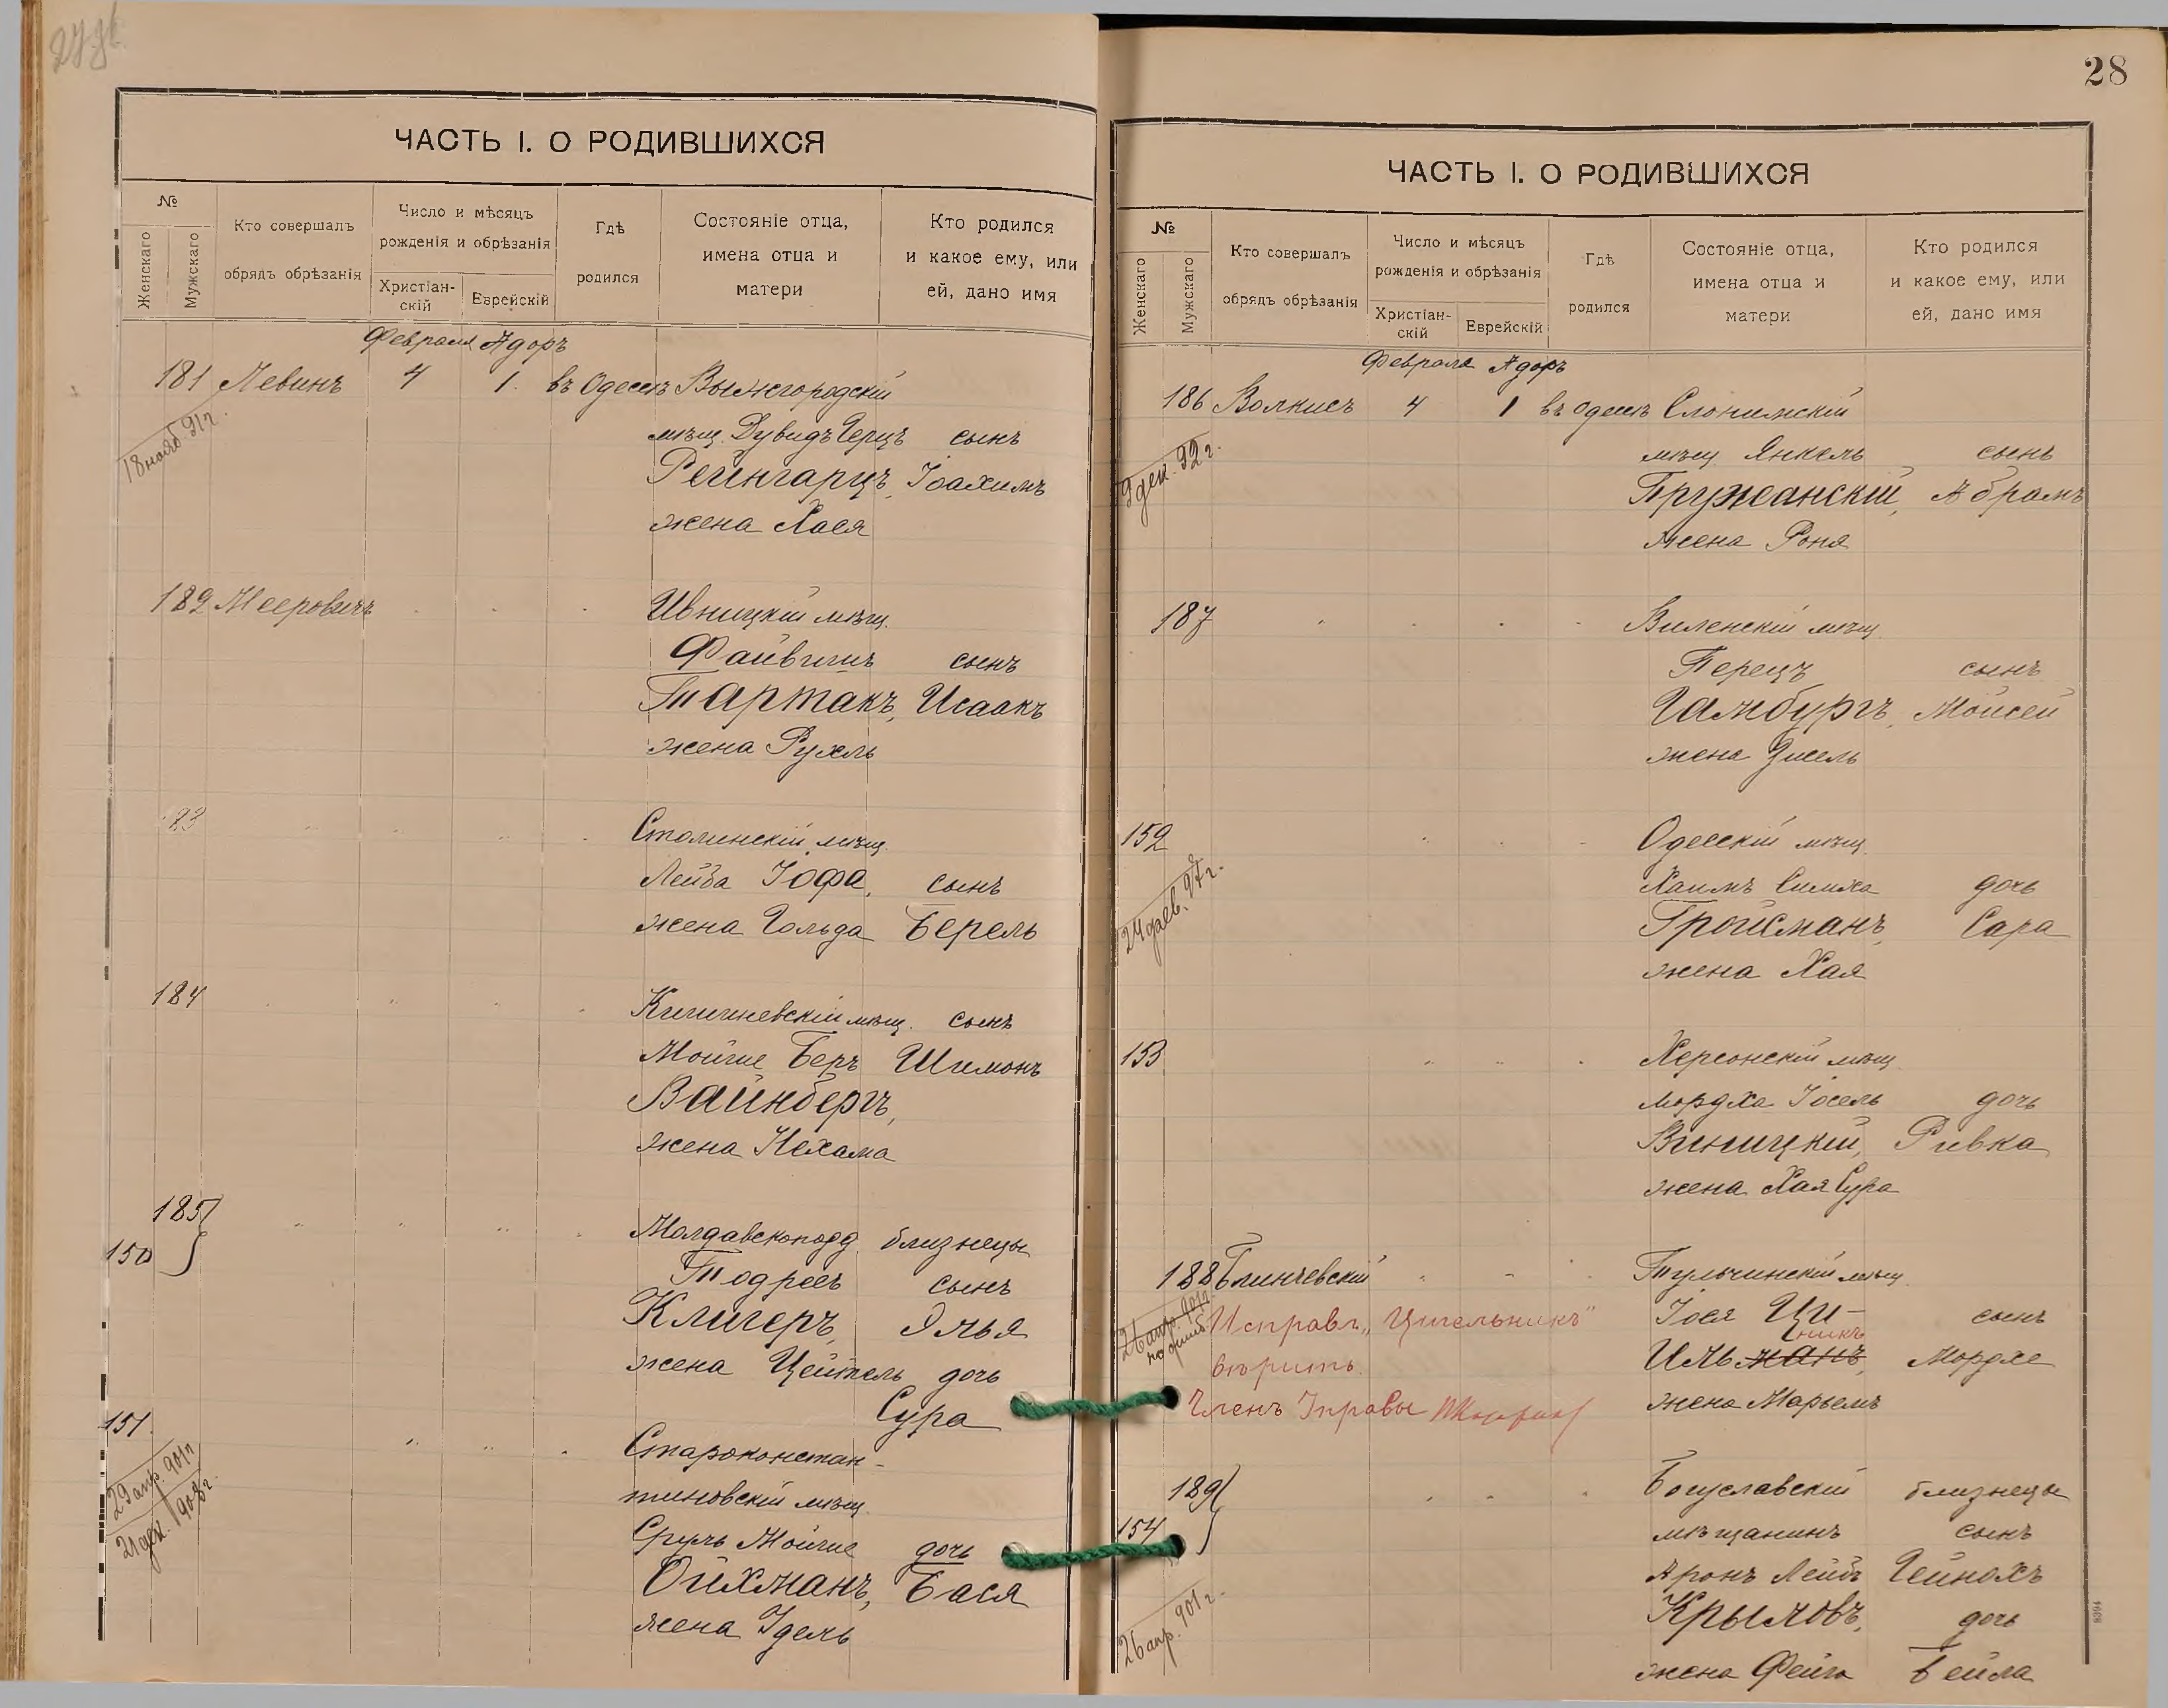 27 об
ЧАСТЬ I. О РОДИВШИХСЯ
№
Женскаго
Мужскаго
Кто совершалъ
обрядъ обрѣзанія
Число и мѣсяцъ
рожденія и обрѣзанія
Христіан-
скій
Еврейскій
Гдѣ
родился
Состояніе отца,
имена отца и
матери
Кто родился
и какое ему, или
ей, дано имя
Февраля Адоръ
181 Левинъ 4 1. въ Одессѣ Вышгородскій
18 нояб 91 г.
мѣщ. Дувидъ Герцъ сынъ
Рейнгарцъ, Іоахимъ
жена Хася
182 Мееровичъ " " " Ивницкій мѣщ.
Файвишъ сынъ
Тартакъ, Исаакъ
жена Рухель
183 " " " " Столинскій мѣщ.
Лейба Іофа, сынъ
жена Гольда Берель
184 " " " " Кишиневскій мѣщ. сынъ
Мойше Беръ Шимонъ
Вайнбергъ,
жена Нехама
185 " " " " Молдавскоподд. близнецы
150
Тодресъ сынъ
Клигеръ, Элья
жена Цейтель дочь
Сура
151. " " " Староконстан-
29 апр. 901 г.
21 дек. 1908 г.
тиновскій мѣщ.
Сруль Мойше дочь
Ойхманъ, Бася
жена Идель
28
ЧАСТЬ I. О РОДИВШИХСЯ
№
Женскаго
Мужскаго
Кто совершалъ
обрядъ обрѣзанія
Число и мѣсяцъ
рожденія и обрѣзанія
Христіан-
скій
Еврейскій
Гдѣ
родился
Состояніе отца,
имена отца и
матери
Кто родился
и какое ему, или
ей, дано имя
Февраля Адоръ
186 Волкисъ 4 1 въ Одессѣ Слонимскій
9 дек. 92 г.
мѣщ. Янкель сынъ
Пружанскій, Абрамъ
жена Роня
187 " " " " Виленскій мѣщ.
Перецъ сынъ
Гамбургъ, Мойсей
жена
152 " " " Одесскій мѣщ.
24 97 г.
Хаимъ Симха дочь
Гройсманъ, Сара
жена Хая
153 " " " Херсонскій мѣщ.
Мордха Іосель дочь
Виницкій, Ривка
жена Хая Сура
188 Блинчевскій " " " Тульчинскій мѣщ.
26 апр. 901 г.
Исправл. „Цигельникъ“
Іося Ци- сынъ
никъ
вѣрить.
Иль манъ, Мордхе
Членъ Управы
жена Марьемъ
189 " " " Богуславскій близнецы
154 мѣщанинъ сынъ
Аронъ Лейбъ Гейнохъ
26 апр. 901 г.
Крымовъ, дочь
жена Фейга Бейла